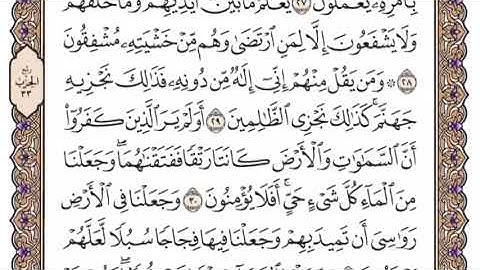 بِأَمْرِهِۦ يَعْمَلُونَ ٢٧ يَعْلَمُ مَا بَيْنَ أَيْدِيهِمْ وَمَا خَلْفَهُمْ
وَلَا يَشْفَعُونَ إِلَّا لِمَنِ ٱرْتَضَىٰ وَهُم مِّنْ خَشْيَتِهِۦ مُشْفِقُونَ
٢٨ ۞ وَمَن يَقُلْ مِنْهُمْ إِنِّىٓ إِلَٰهٌ مِّن دُونِهِۦ فَذَٰلِكَ نَجْزِيهِ
جَهَنَّمَ ۚ كَذَٰلِكَ نَجْزِى ٱلظَّٰلِمِينَ ٢٩ أَوَلَمْ يَرَ ٱلَّذِينَ كَفَرُوٓا۟
أَنَّ ٱلسَّمَٰوَٰتِ وَٱلْأَرْضَ كَانَتَا رَتْقًا فَفَتَقْنَٰهُمَا ۖ وَجَعَلْنَا
مِنَ ٱلْمَآءِ كُلَّ شَىْءٍ حَىٍّ ۖ أَفَلَا يُؤْمِنُونَ ٣٠ وَجَعَلْنَا فِى ٱلْأَرْضِ
رَوَٰسِىَ أَن تَمِيدَ بِهِمْ وَجَعَلْنَا فِيهَا فِجَاجًا سُبُلًا لَّعَلَّهُمْ
ربع
الحزب
٣٣